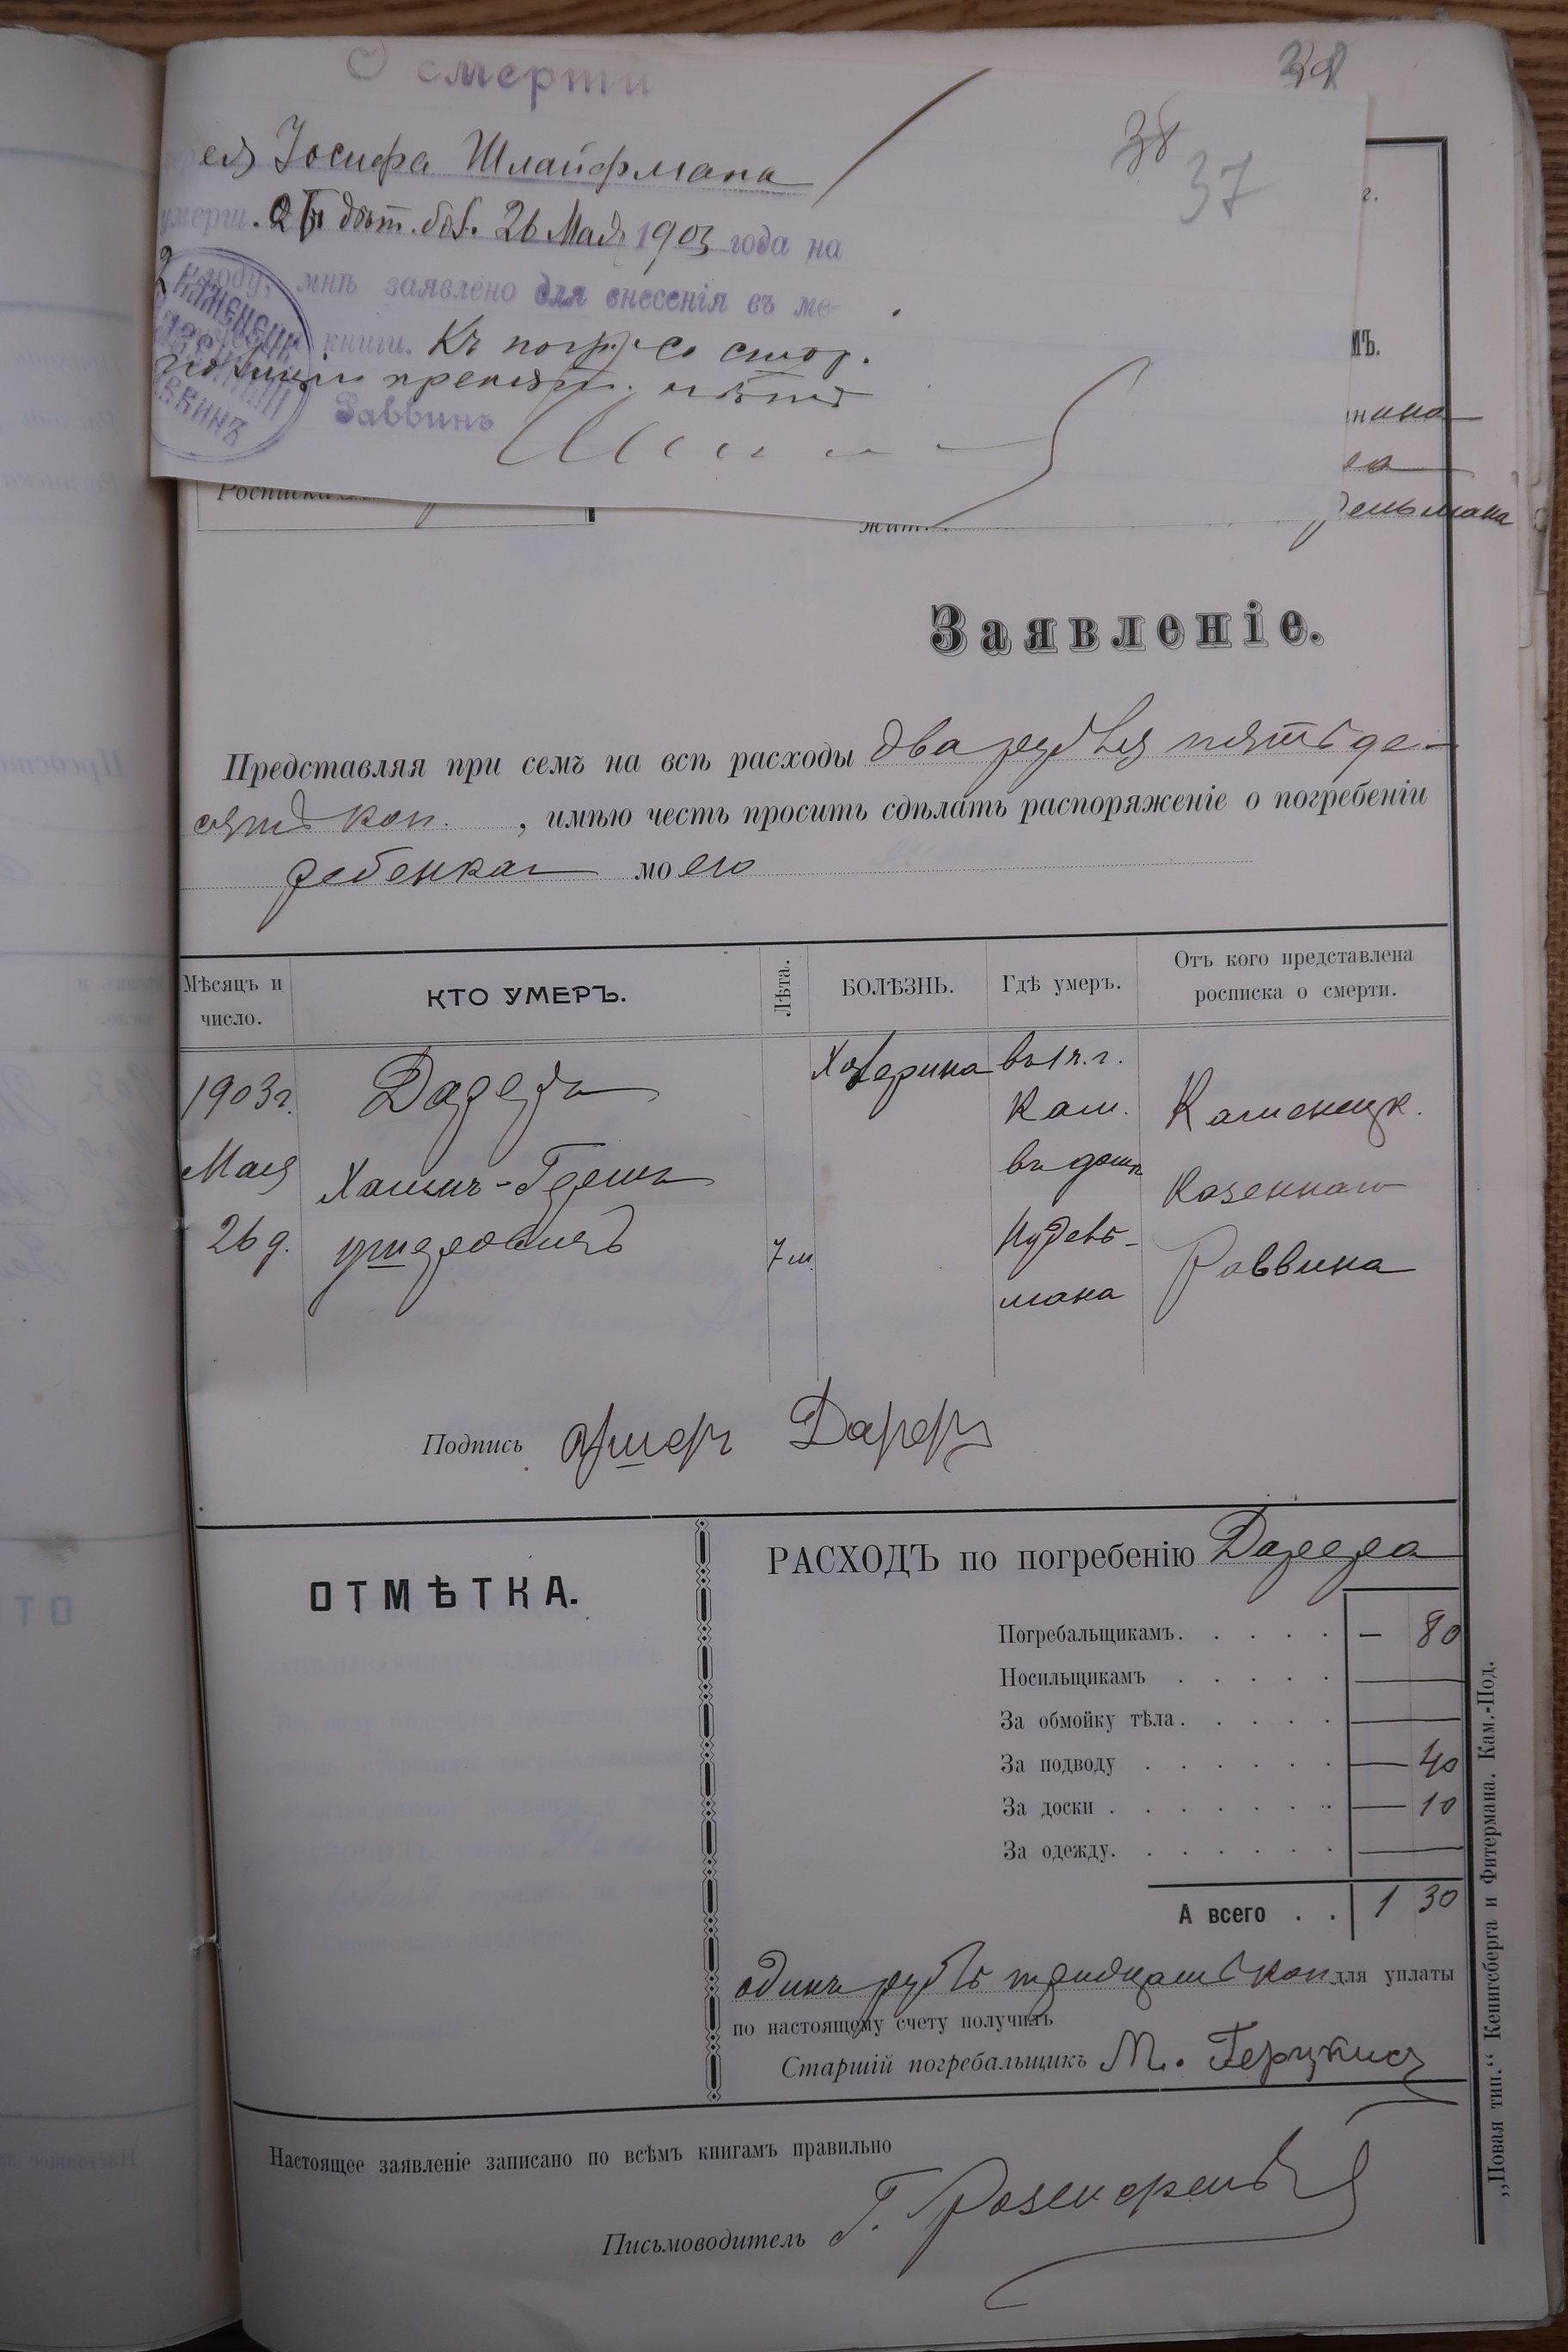 О смерти
38
38
37
Іосифа Шлайфмана
умерш. дѣт. бол. 26 Мая 1903 года на
мнѣ заявлено для внесенія въ ме-
книги. Къ погр. со стор.
полиціи препят. нѣтъ
КАМЕНЕЦЪ
РАВВИНЪ
Раввинъ
г.
МЪ.
нина
Росписка
жит.
ельмана
Заявленіе.
Представляя при семъ на всѣ расходы два рубля пятьде-
сятъ коп. , имѣю честь просить сдѣлать распоряженіе о погребеніи
ребенка моего
Мѣсяцъ и число.
КТО УМЕРЪ.
Лѣта.
БОЛѢЗНЬ.
Гдѣ умеръ.
Отъ кого представлена росписка о смерти.
1903 г.
Мая
26 д.
Дареръ
Хаимъ-Гершъ
Ушеровичъ
7 м.
Холерина
въ 1 ч. г.
Кам.
въ домѣ
Нудель-
мана
Каменецк.
Казеннаго
Раввина
Подпись Ушеръ Дареръ
ОТМѢТКА.
РАСХОДЪ по погребенію Дарера
Погребальщикамъ. . . . . — 80
Носильщикамъ . . . . —
За обмойку тѣла. . . . . —
За подводу . . . . . . — 40
За доски . . . . . . . — 10
За одежду. . . . . . . —
А всего . . 1 30
одинъ рубль тридцать коп для уплаты
по настоящему счету получилъ
Старшій погребальщикъ М.
Настоящее заявленіе записано по всѣмъ книгамъ правильно
Письмоводитель Г. Розенфельд
„Новая тип.“ Кенигсберга и Фитермана. Кам.-Под.